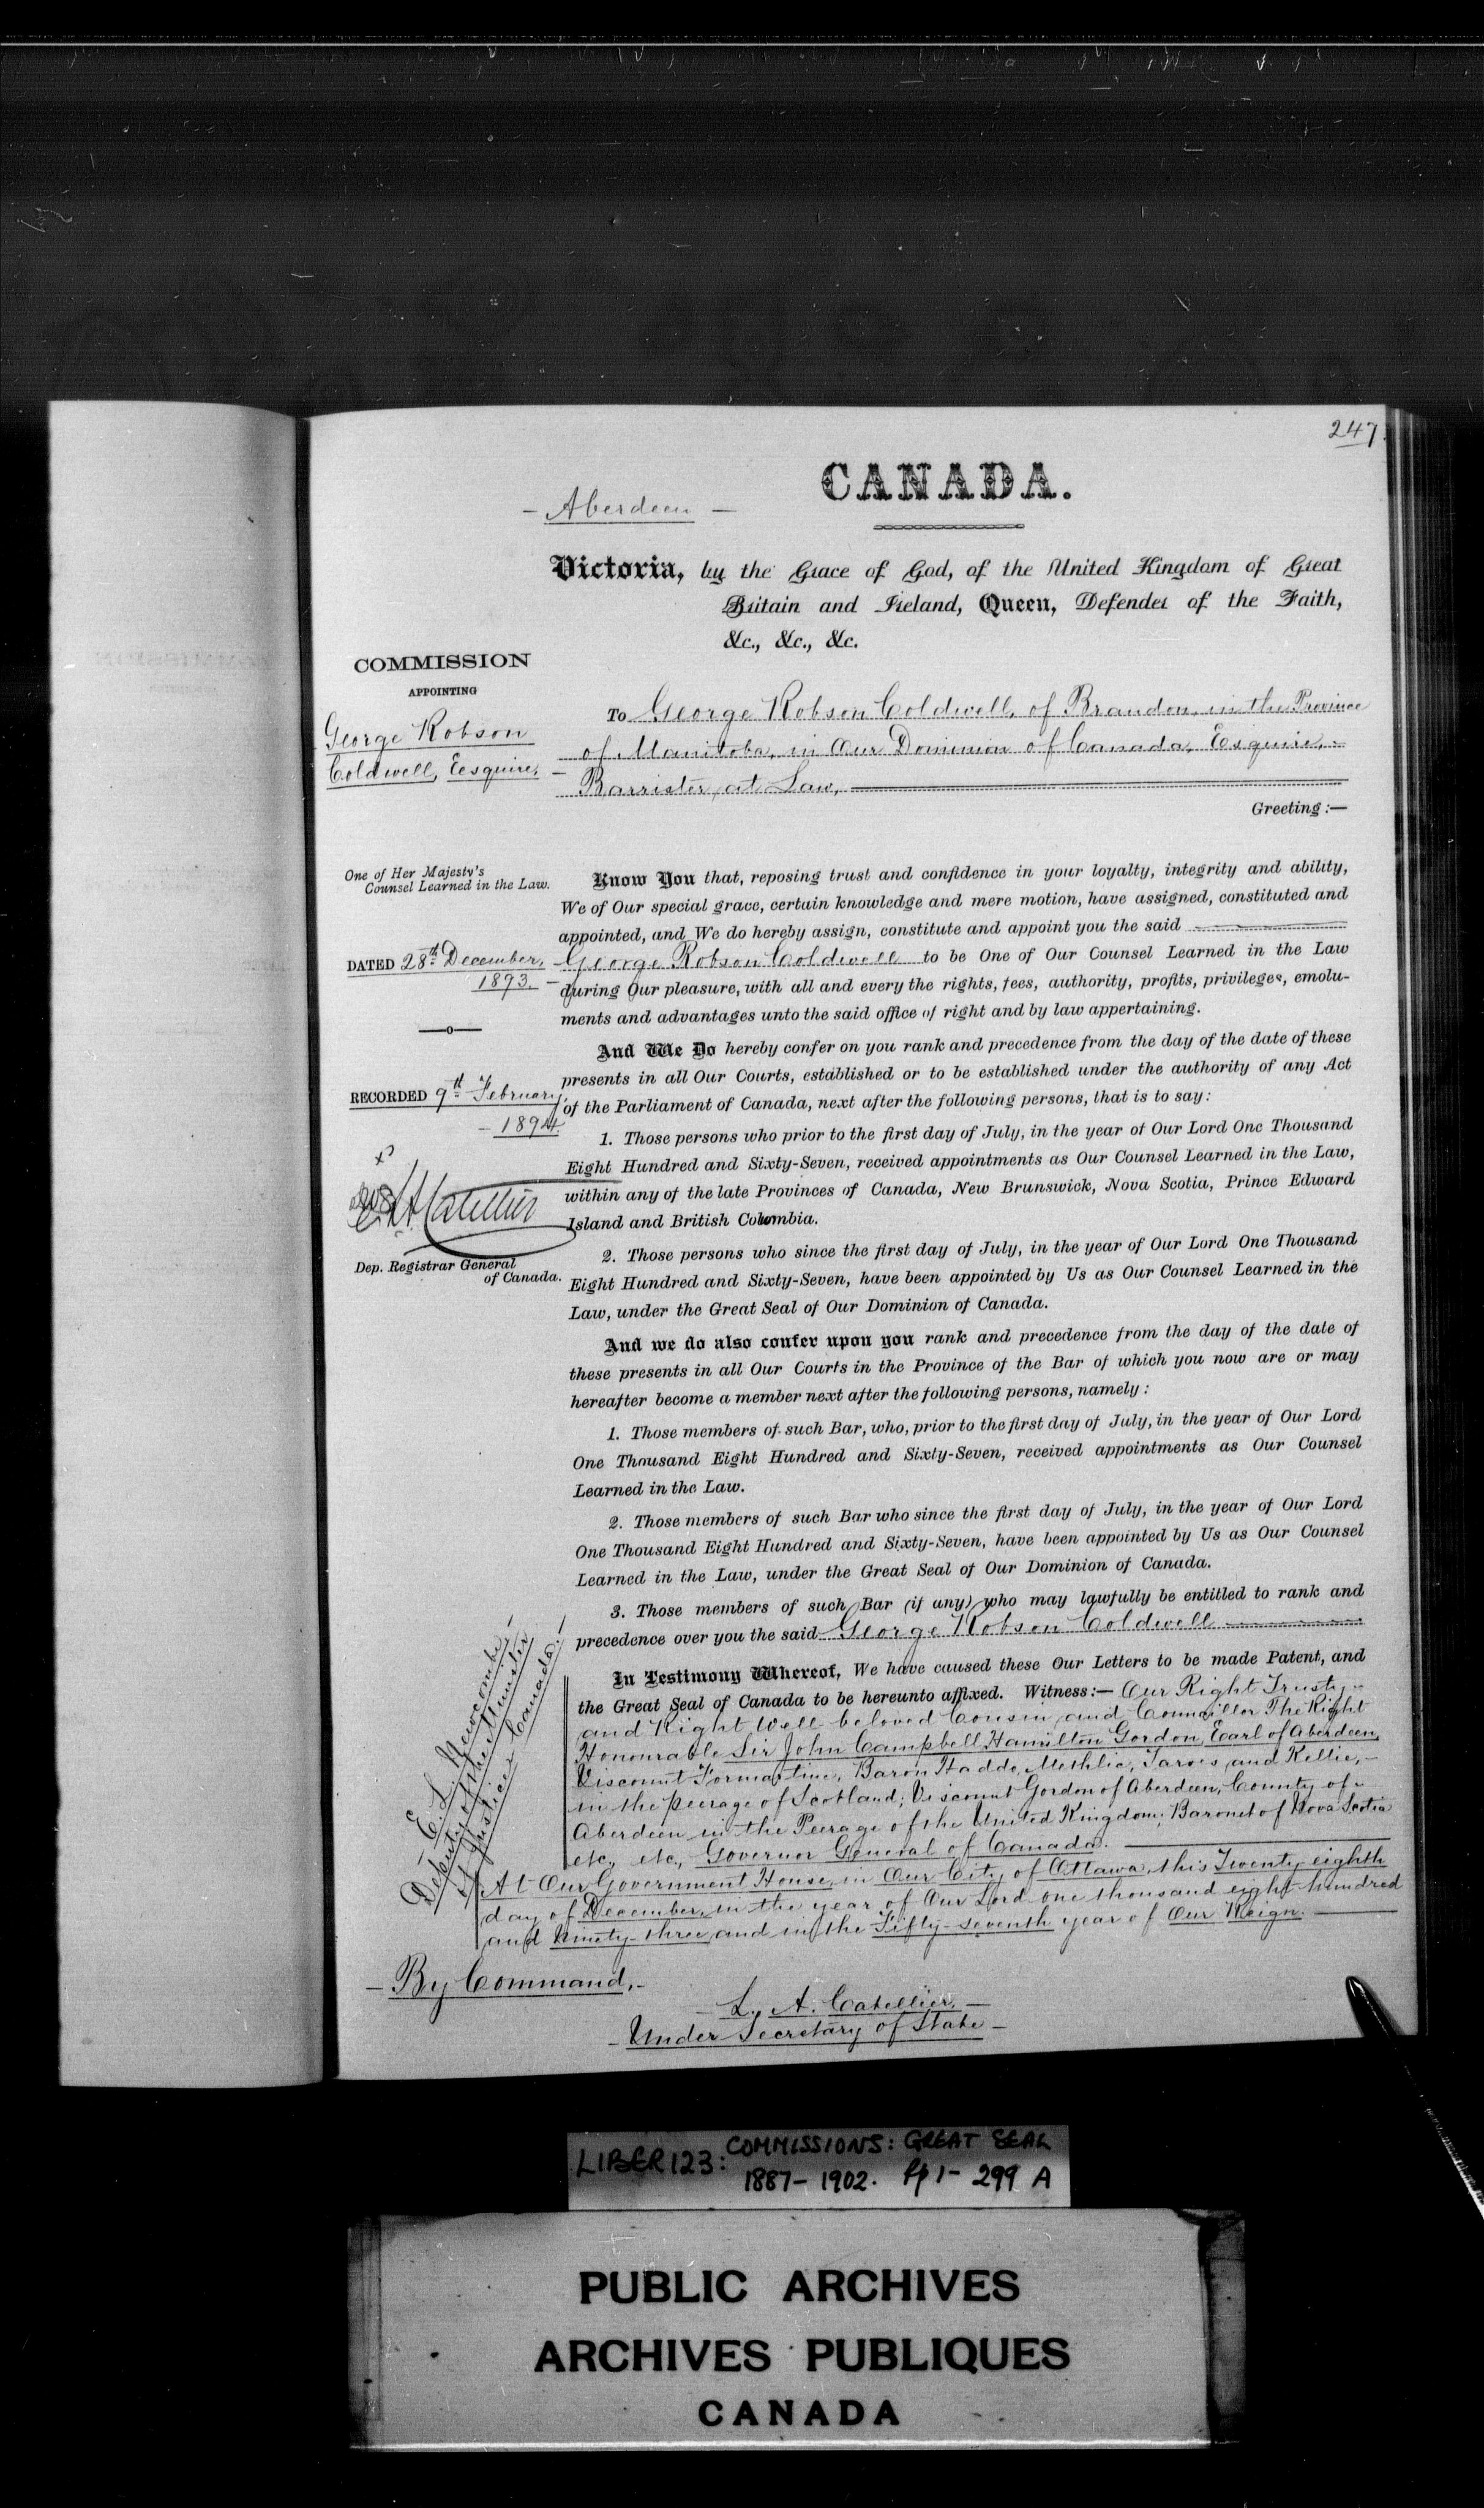 247.
CANADA.
- Aberdeen -
Victoria, by the Grace of God, of the United Kingdom of Great
Britain and Ireland, Queen, Defender of the Faith,
&c., &c., &c.
COMMISSION
APPOINTING
George Robson
Coldwell, Eesquire,
To George Robson Coldwell, of Brandon, in the Province
of Manitoba, in Our Dominion of Canada, Esquire,
Barrister at Law,
Greeting :—
One of Her Majesty's
Counsel Learned in the Law.
DATED 28th December,
1893.
—o—
RECORDED 9th February,
- 1894.
L. A. Catellier
Dep. Registrar General
of Canada.
Know You that, reposing trust and confidence in your loyalty, integrity and ability,
We of Our special grace, certain knowledge and mere motion, have assigned, constituted and
appointed, and We do hereby assign, constitute and appoint you the said
George Robson Coldwell to be One of Our Counsel Learned in the Law
during Our pleasure, with all and every the rights, fees, authority, profits, privileges, emolu-
ments and advantages unto the said office of right and by law appertaining.
And We Do hereby confer on you rank and precedence from the day of the date of these
presents in all Our Courts, established or to be established under the authority of any Act
of the Parliament of Canada, next after the following persons, that is to say :
1. Those persons who prior to the first day of July, in the year of Our Lord One Thousand
Eight Hundred and Sixty-Seven, received appointments as Our Counsel Learned in the Law,
within any of the late Provinces of Canada, New Brunswick, Nova Scotia, Prince Edward
Island and British Columbia.
2. Those persons who since the first day of July, in the year of Our Lord One Thousand
Eight Hundred and Sixty-Seven, have been appointed by Us as Our Counsel Learned in the
Law, under the Great Seal of Our Dominion of Canada.
And we do also confer upon you rank and precedence from the day of the date of
these presents in all Our Courts in the Province of the Bar of which you now are or may
hereafter become a member next after the following persons, namely :
1. Those members of such Bar, who, prior to the first day of July, in the year of Our Lord
One Thousand Eight Hundred and Sixty-Seven, received appointments as Our Counsel
Learned in the Law.
2. Those members of such Bar who since the first day of July, in the year of Our Lord
One Thousand Eight Hundred and Sixty-Seven, have been appointed by Us as Our Counsel
Learned in the Law, under the Great Seal of Our Dominion of Canada.
3. Those members of such Bar (if any) who may lawfully be entitled to rank and
precedence over you the said George Robson Coldwell
In Testimony Whereof, We have caused these Our Letters to be made Patent, and
the Great Seal of Canada to be hereunto affixed. Witness :— Our Right Trusty
and Right Well-beloved Cousin and Councillor The Right
Honourable Sir John Campbell Hamilton Gordon, Earl of Aberdeen,
Viscount Formartine, Baron Haddo, Methlic, Tarves and Kellie,
in the peerage of Scotland; Viscount Gordon of Aberdeen, County of
Aberdeen in the Peerage of the United Kingdom; Baronet of Nova Scotia
etc., etc., Governor General of Canada.
At Our Government House, in Our City of Ottawa, this Twenty-eighth
day of December, in the year of Our Lord one thousand eight hundred
and Ninety-three, and in the Fifty-seventh year of Our Reign.
E. L. Newcombe,
Deputy of the Minister
of Justice, Canada.
- By Command, -
- L. A. Catellier, -
- Under Secretary of State -
LIBER 123: COMMISSIONS: GREAT SEAL
1887 - 1902. Pp 1 - 299 A
PUBLIC ARCHIVES
ARCHIVES PUBLIQUES
CANADA